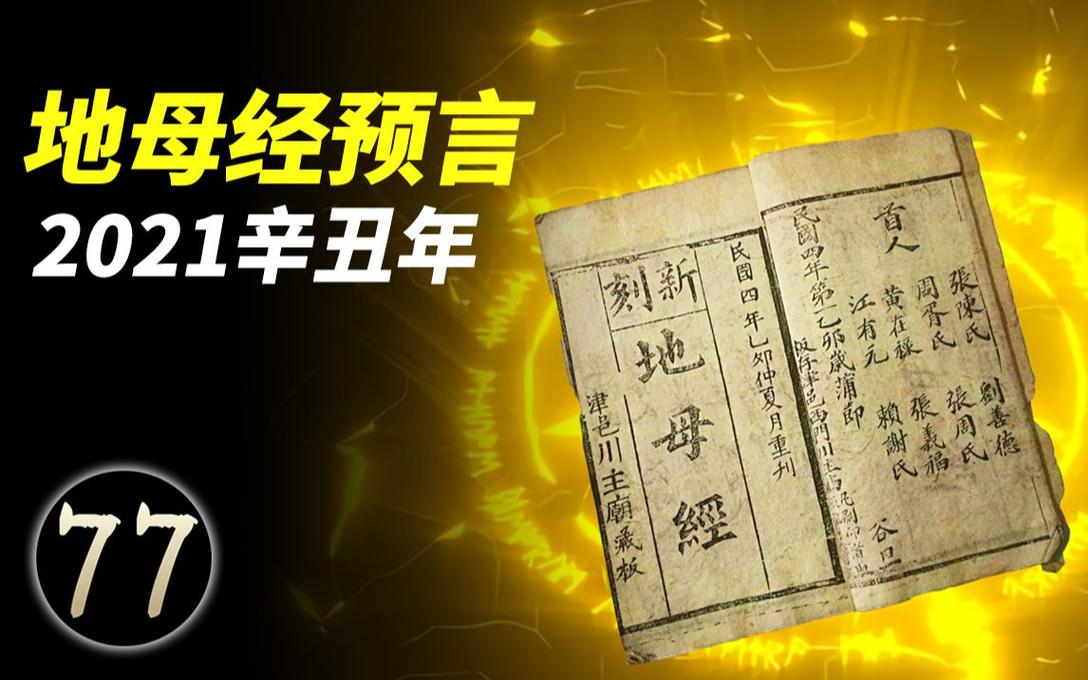 地母经预言
2021辛丑年
77
首人
張陳氏
劉善德
周胥氏
張周氏
黄在祿
張義福
江有元
賴謝氏
谷旦
民國四年第一乙卯歲蒲節
民國四年乙卯仲夏月重刊
新刻
地母經
津邑川主廟藏板